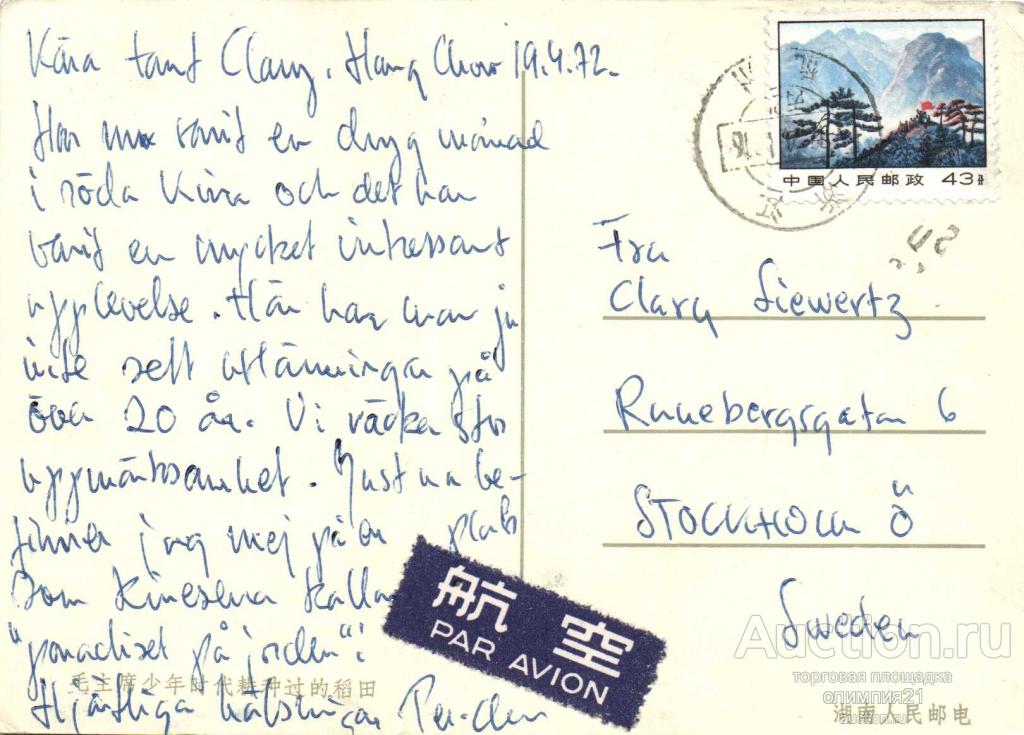 Kära tant Clary. Hang Chow 19.4.72.
Har nu varit en dryg månad
i röda Kina och det har
varit en mycket intressant
upplevelse. Här har man ju
inte sett utlänningar på
över 20 år. Vi väcker stor
uppmärksamhet. Just nu be-
finner jag mej på en plats
som kineserna kallar
"paradiset på jorden"!
Hjärtliga hälsningar
毛主席少年时代耕种过的稻田
中国人民邮政 43分
浙江
Fra
Clary Siewertz
Runebergsgatan 6
STOCKHOLM Ö
Sweden
航空
PAR AVION
湖南人民邮电
Auction.ru
торговая площадка
олимпия21
auction.ru